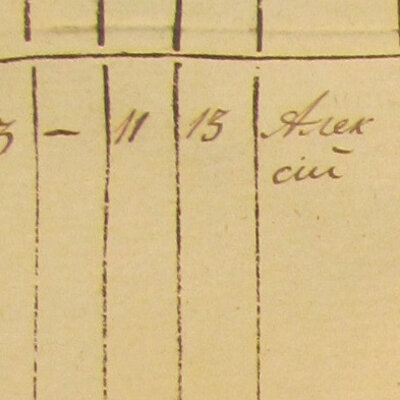 3 — 11 13 Алек
сій